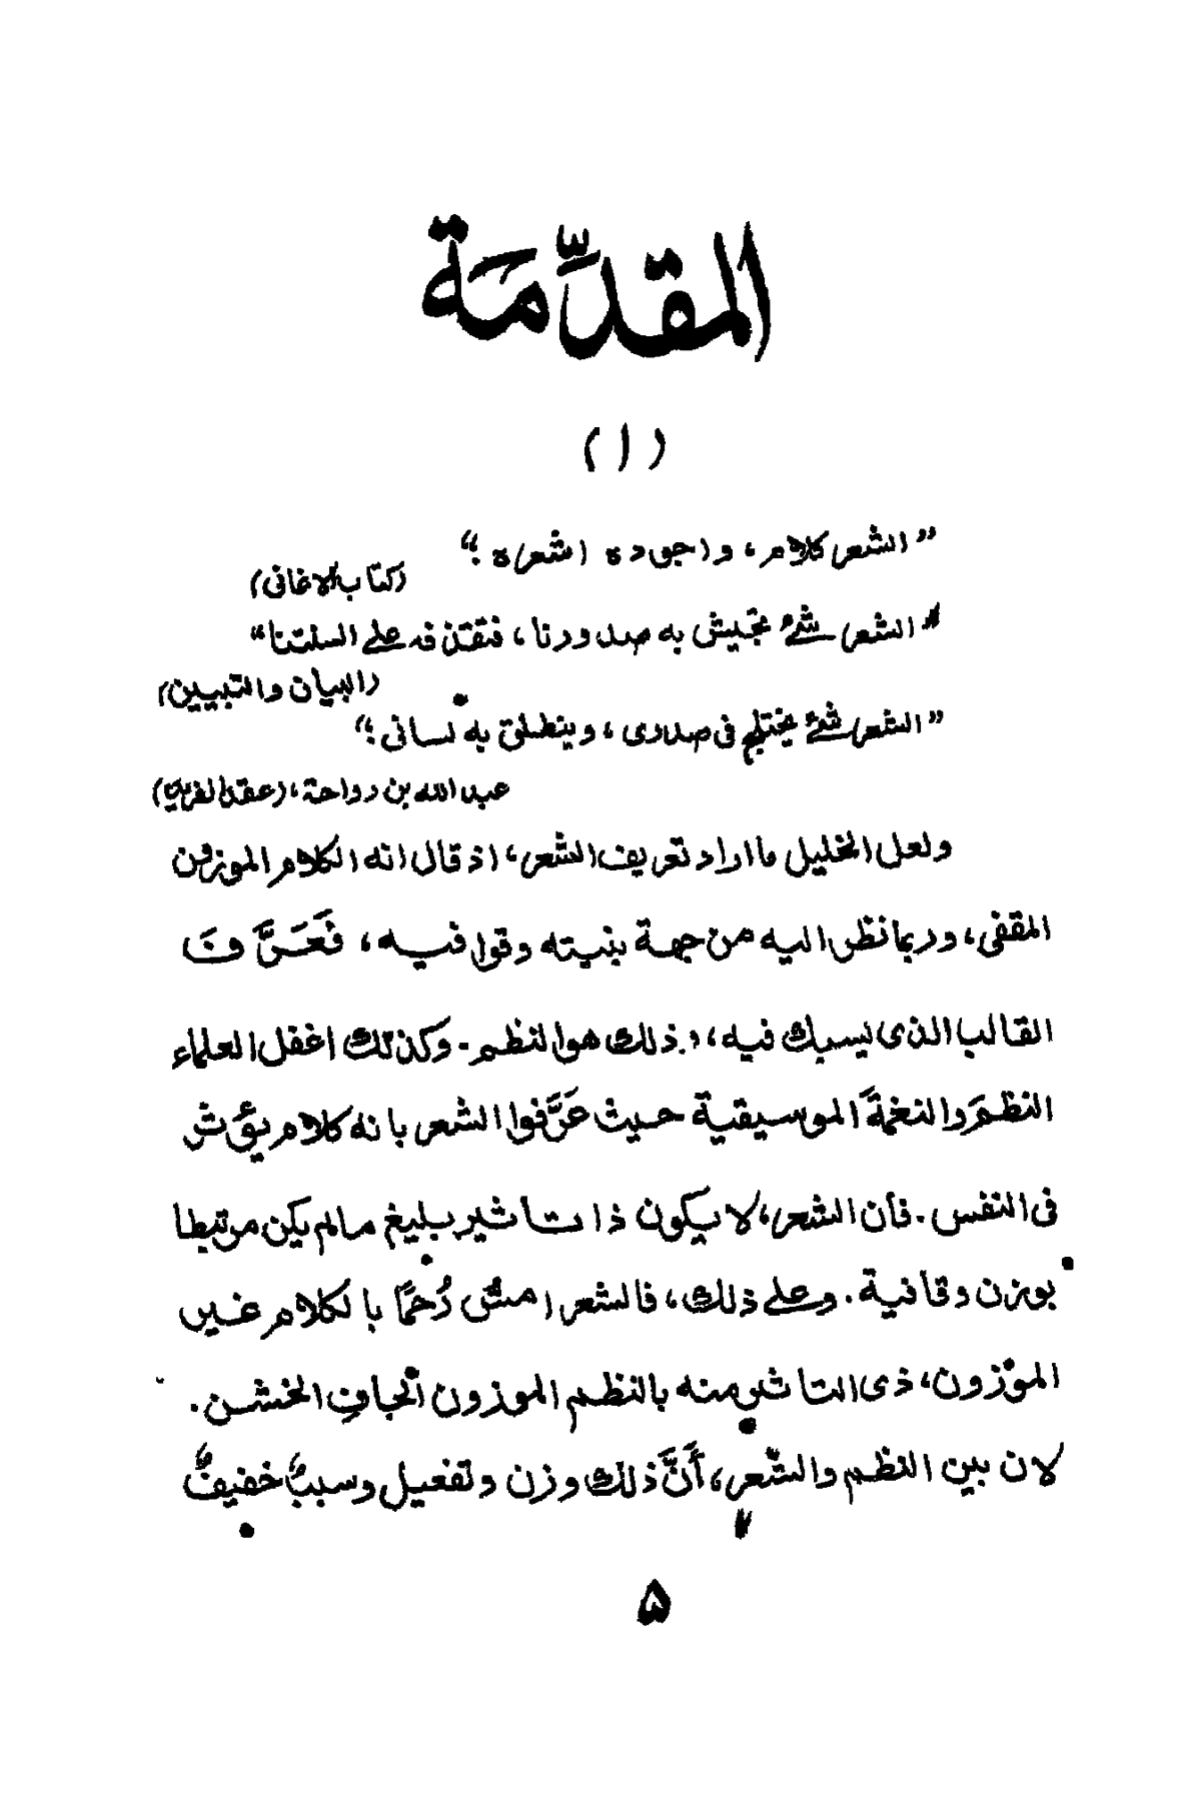 المقدِّمَة
(١)
”الشعر كلام، واجوده اشعره؛“
(كتاب الاغانى)
”الشعر شئ تجيش به صدورنا، فتقذفه على السنتنا“
(البيان والتبيين)
”الشعر شئ يختلج فى صدرى، وينطلق به لسانى؛“
عبد الله بن رواحة، (عقد الفريد)
ولعل الخليل ما اراد تعريف الشعر، اذ قال انه الكلام الموزون
المقفى، وربما نظر اليه من جهة بنيته وقوافيه، فَعَرَّفَ
القالب الذى يسبك فيه، وذلك هو النظم. وكذلك اغفل العلماء
النظمَ والنغمةَ الموسيقية حيث عَرَّفوا الشعر بانه كلام يؤثر
فى النفس. فأن الشعر، لا يكون ذا تاثير بليغ مالم يكن مرتبطا
بوزن وقافية. وعلى ذلك، فالشعر امسُّ رُحمًا بالكلام غير
الموزون، ذى التاثير منه بالنظم الموزون الجافِ الخشن.
لان بين النظم والشعر، أَنَّ ذلك وزن وتفعيل وسببٌ خفيفٌ
۵